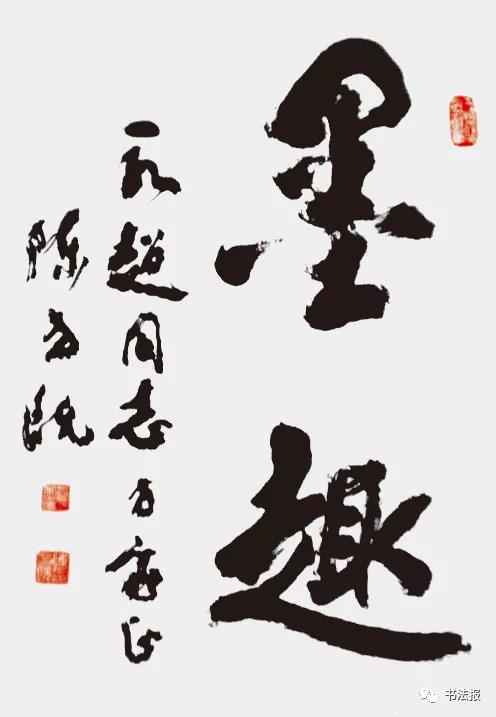 墨趣
超同志方家正
陈方既
书法报